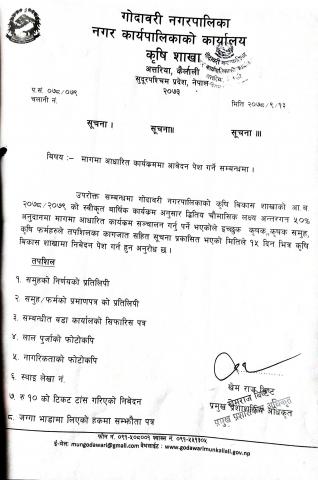 गोदावरी नगरपालिका
नगर कार्यपालिकाको कार्यालय
कृषि शाखा
अत्तरिया, कैलाली
सुदूरपश्चिम प्रदेश, नेपाल
२०७३
प.सं. ०७८/०७९
चलानी नं.
मिति २०७८/९/१३
सूचना । सूचना॥ सूचना ॥।
विषय :- मागमा आधारित कार्यक्रममा आवेदन पेश गर्ने सम्बन्धमा ।
उपरोक्त सम्बन्धमा गोदावरी नगरपालिकाको कृषि बिकास शाखाको आ.ब.
२०७८/२०७९ को स्वीकृत वार्षिक कार्यक्रम अनुसार द्वितिय चौमासिक लक्ष्य अन्तरगत ५०%
अनुदानमा मागमा आधारित कार्यक्रम सञ्चालन गर्नु पर्ने भएकोले इच्छुक कृषक,कृषक समुह,
कृषि फर्महरुले तपशिलका कागजात सहित सूचना प्रकासित भएको मितिले १५ दिन भित्र कृषि
विकास शाखामा निबेदन पेश गर्न हुन अनुरोध छ ।
तपशिल
१. समुहको निर्णयको प्रतिलिपी
२. समुह/फर्मको प्रमाणपत्र को प्रतिलिपी
३. सम्बन्धीत बडा कार्यालको सिफारिस पत्र
४. लाल पुर्जाको फोटोकपि
५. नागरिकताको फोटोकपि
६. स्थाइ लेखा नं.
७. रु १० को टिकट टाँस गरिएको निबेदन
८. जग्गा भाडामा लिएको हकमा सम्झौता पत्र
खेम राज बिष्ट
प्रमुख प्रशासकीय अधिकृत
फोन नं. ०९१-५०८००१ फ्याक्स नं. ०९१-५५१३०५
ई-मेल: mungodawari@gmail.com वेभसाईड : www.godawarimunkailali.gov.np